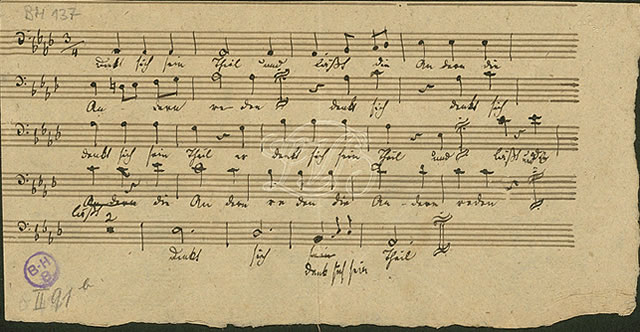 BH 137
3/4
denkt sich sein Theil und läßt die Andern die
An dern re den denkt sich denkt sich
denkt sich sein Theil er denkt sich sein Theil und läßt und
Andern die An dern re den die An-dern reden
läßt 2
Denkt sich sein Theil
denkt sich sein
B-H
B
II 91 b